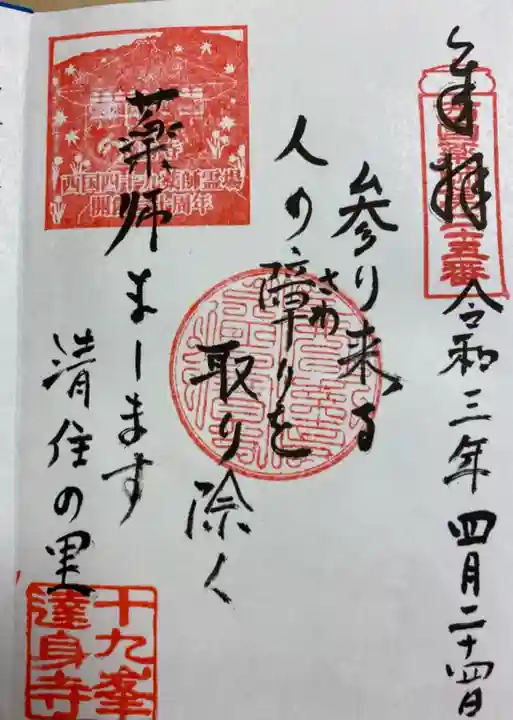 奉拝
令和三年四月二十四日
参り来る
人の障りを
さわ
取り除く
薬師まします
清住の里
西国四十九薬師霊場
十九峯
達身寺